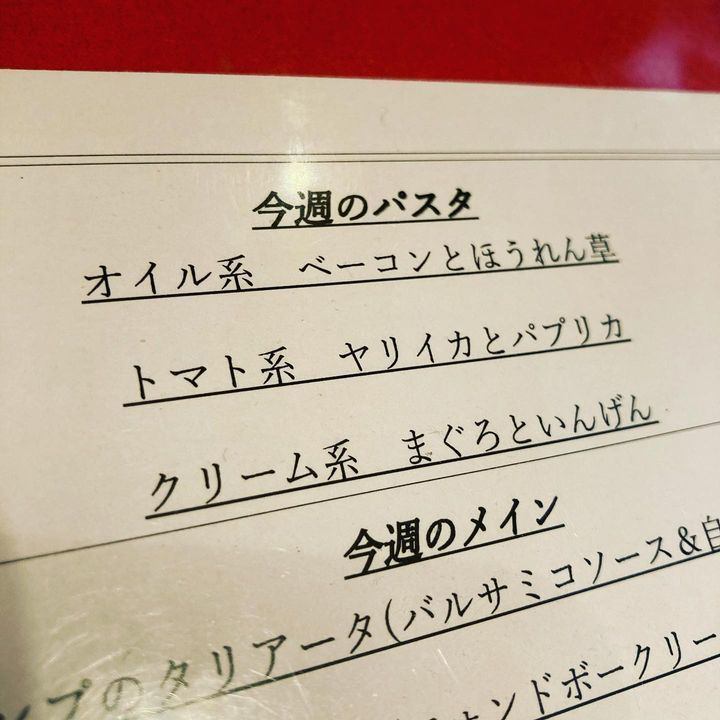 今週のパスタ
オイル系 ベーコンとほうれん草
トマト系 ヤリイカとパプリカ
クリーム系 まぐろといんげん
今週のメイン
プのタリアータ(バルサミコソース&自
ンドボークリー